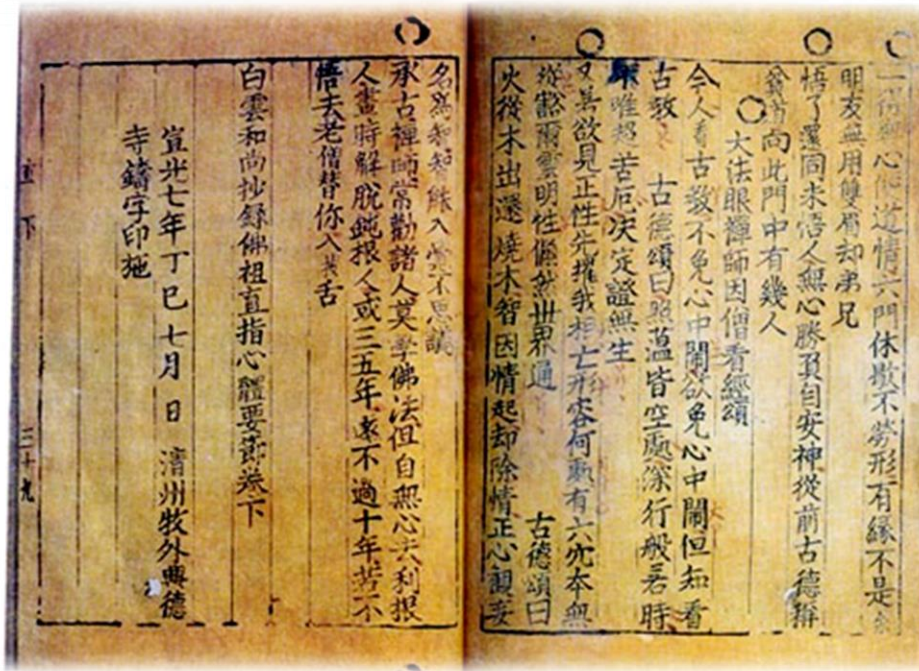 心他道情六門休歇不勞形有緣不是
朋友無用雙眉却弟兄
悟了還同未悟人無心勝負自安神從前古德稱
向此門中有幾人
大法眼禪師因僧看經頌
今人看古教不免心中鬧欲免心中鬧但知看
古教 古德頌曰照蘊皆空處深行般若時
唯超苦厄決定證無生
欲見正性先摧我相亡形容何處有六穴本無
蹤豁爾雲明性翛然世界通 古德頌曰
火從木出還燒木智因情起却除情正心觀妄
名爲智智能入 不思議
承古禪師常勸諸人莫學佛法但自無心去利根
人晝時解脫鈍根人或三五年遠不過十年若不
悟去老僧替你入 舌
白雲和尚抄錄佛祖直指心體要節卷下
宣光七年丁巳七月 日 淸州牧外興德
寺鑄字印施
直下 三十九